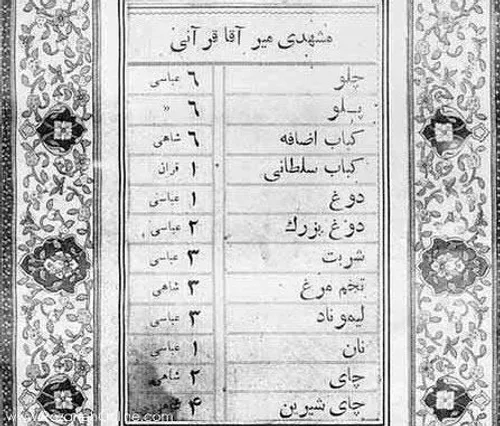 مشهدی میر آقا قرآنی
چلو ٦ عباسی
پلو ٦ »
کباب اضافه ٦ شاهی
کباب سلطانی ١ قران
دوغ ١ عباسی
دوغ بزرك ٢ عباسی
شربت ٣ عباسی
تخم مرغ ٣ شاهی
لیموناد ٣ عباسی
نان ١ عباسی
چای ٢ شاهی
چای شیرین ۴